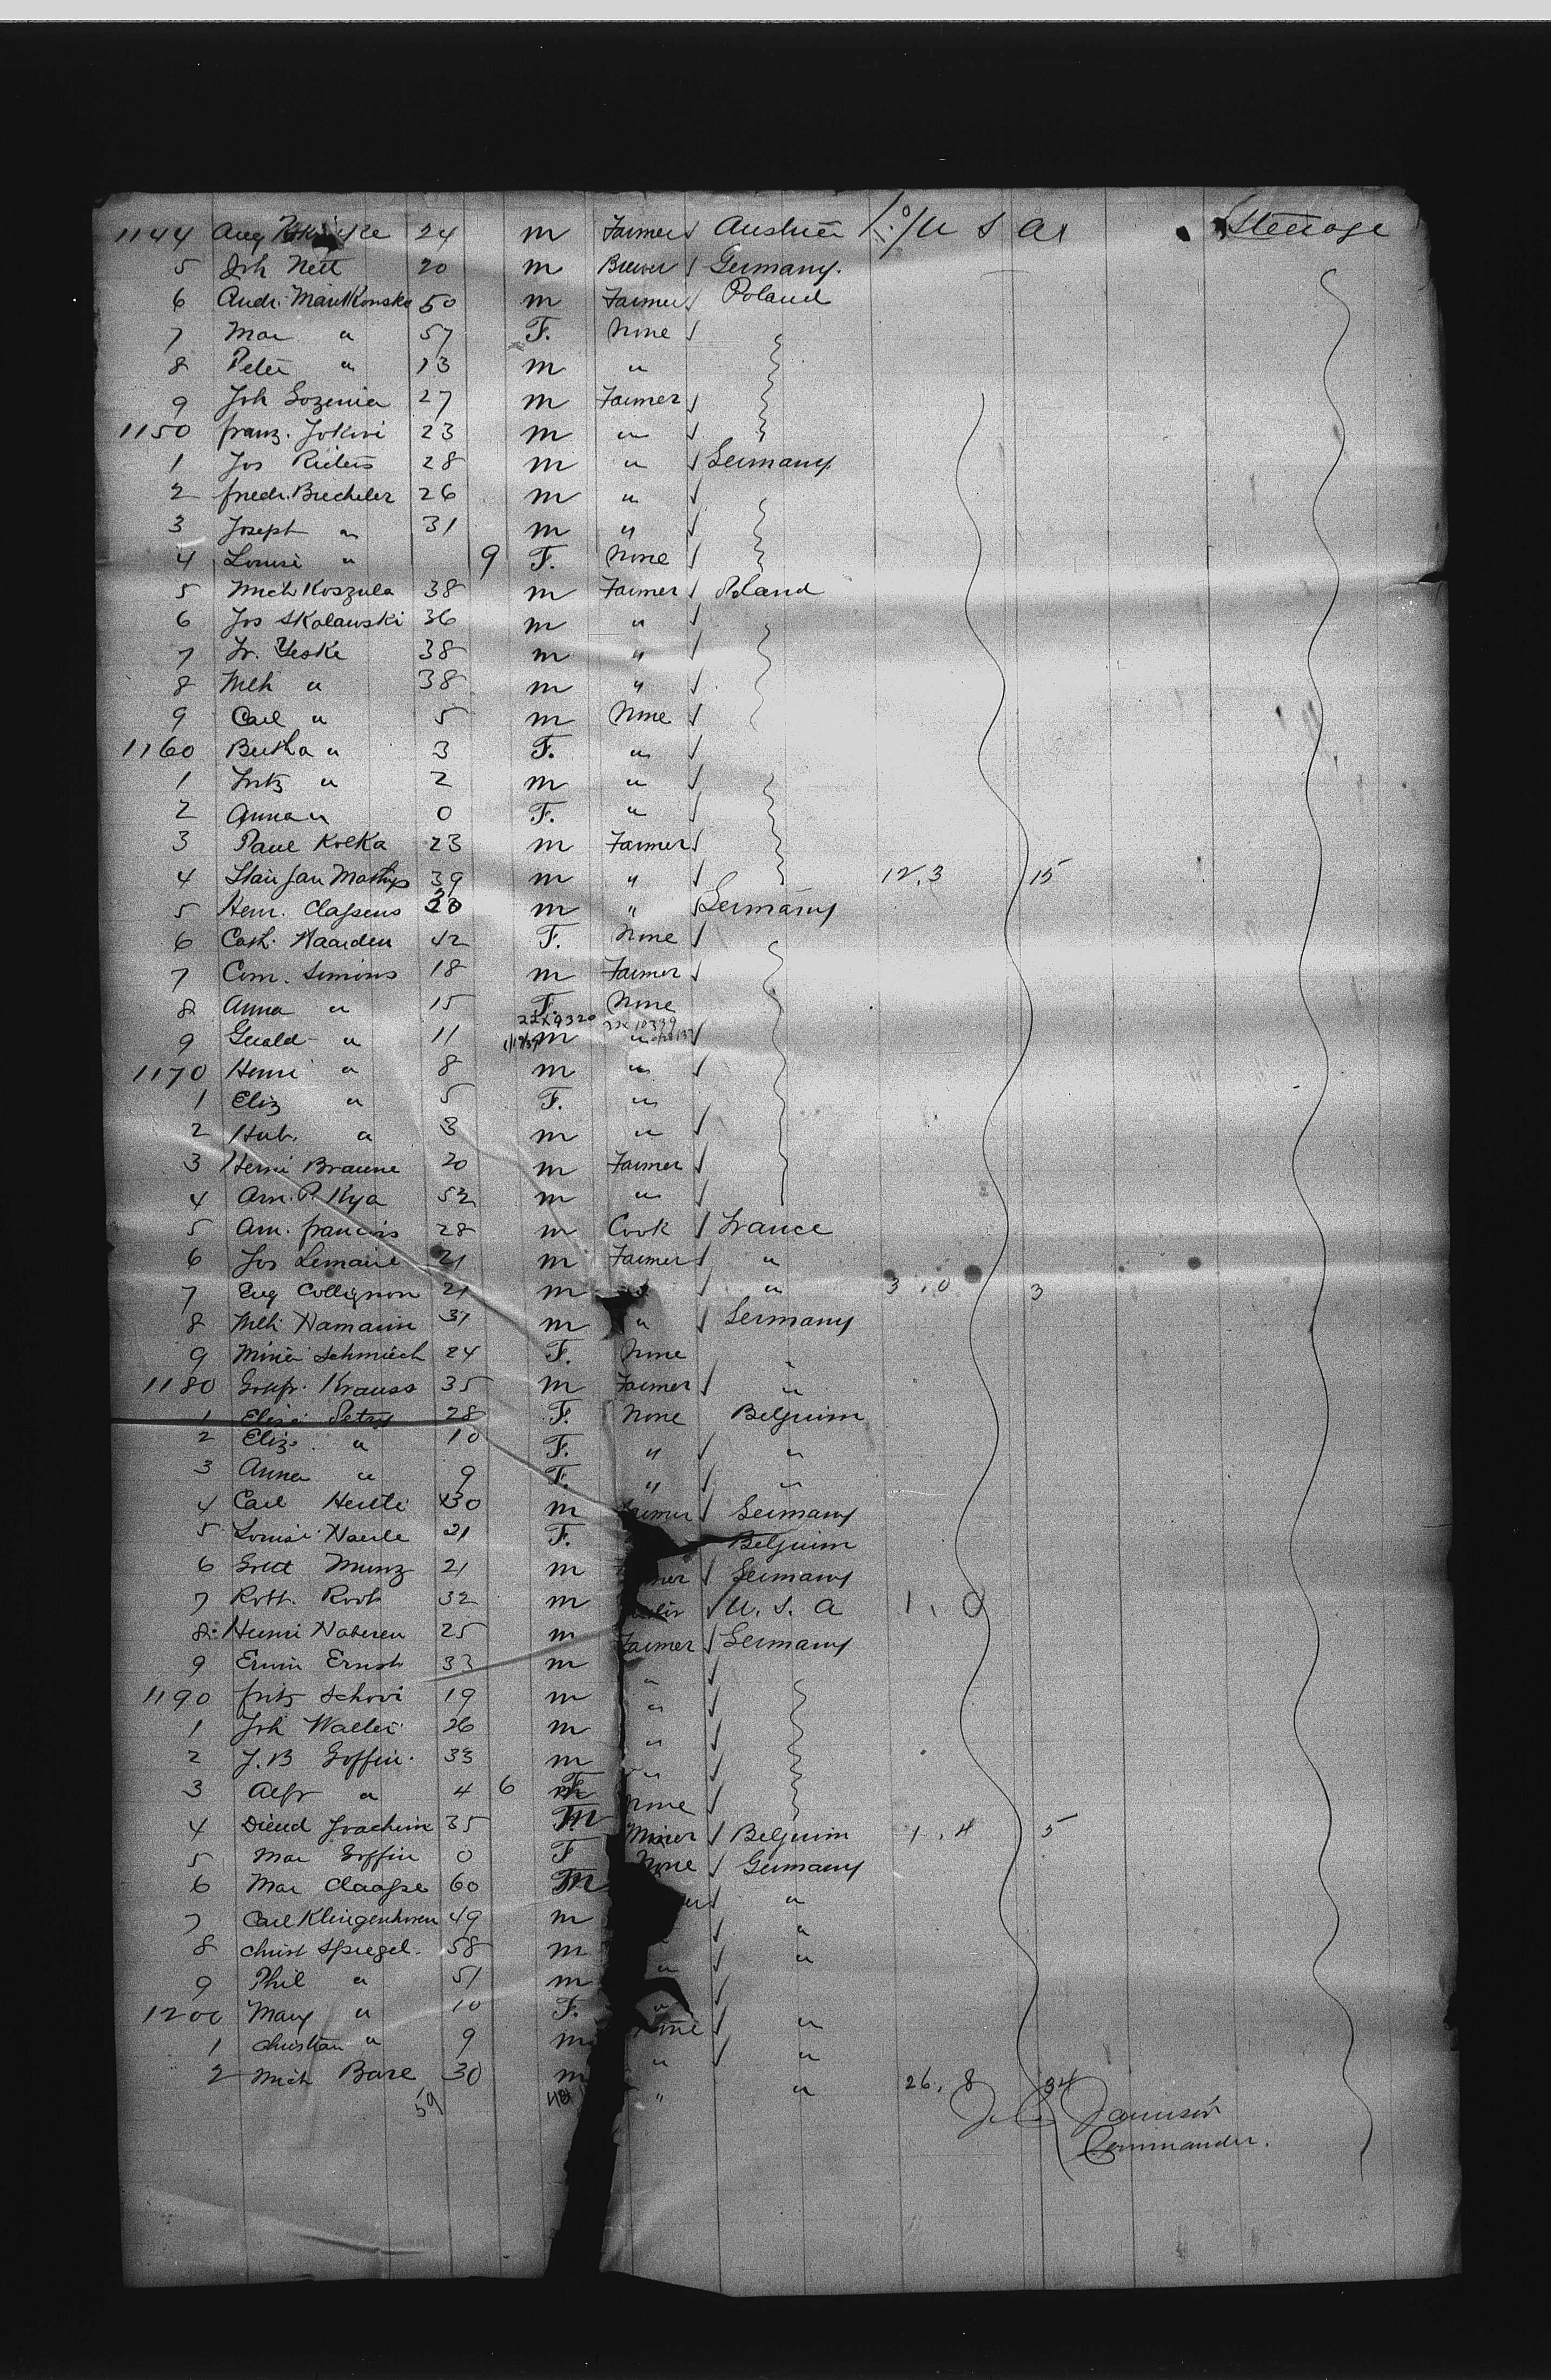 1144 Aug 24 m Farmer Austria U S A Steerage
5 Joh Nett 20 m Brewer Germany.
6 Andr. Mankowske 50 m Farmer Poland
7 Mar " 57 F. None
8 Peter " 13 m "
9 Joh Lozenia 27 m Farmer
1150 franz. Jokivi 23 m "
1 Jos Rieters 28 m " Germany
2 fredr. Buecheler 26 m "
3 Joseph " 31 m "
4 Louise " 9 F. None
5 Mich Koszula 38 m Farmer Poland
6 Jos Skolawski 36 m "
7 Fr. Yeske 38 m "
8 Mlh " 38 m "
9 Carl " 5 m None
1160 Bertha " 3 F. "
1 Fritz " 2 m "
2 Anna " 0 F. "
3 Paul Kolka 23 m Farmer
4 Stan Jan Mathys 39 m " 12.3 15
5 Henr. Classens m " Germany
6 Cath. Naarden 42 F. None
7 Corn. Simons 18 m Farmer
8 Anna " 15 F. None
22X9320
9 Gerald " 11 m "
1170 Henri " 8 m "
1 Eliz " 5 F. "
2 Hub. " 3 m "
3 Henri Braune 20 m Farmer
4 Arn. P. Kya 52 m "
5 Am. francois 28 m Cook France
6 Jos Lemaire 21 m Farmer "
7 Eug Collignon 21 m " 3.0 3
8 Mlh Hamann 37 m " Germany
9 Minie Schmiech 24 F. None
1180 Krauss 35 m Farmer "
1 Elise Petry 28 F. None Belguim
2 Eliz. " 10 F. " "
3 Anna " 9 F. " "
4 Carl Hertle 30 m Germany
5 Louise Haerle 21 F. Belguim
6 Gott Munz 21 m Germany
7 Robt. Root 32 m U. S. A 1. 0
8 Henri Naberen 25 m Farmer Germany
9 Erwin Ernst 33 m "
1190 fritz Schovi 19 m "
1 Joh Walter 26 m "
2 J. B Goffin. 33 m "
3 Alfr " 4 6 None
4 Dieud Joachim 35 m Miner Belguim 1.4 5
5 Mar Goffin 0 F None Germany
6 Mar Claasse 60 m "
7 Carl Klingenhoven 49 m "
8 Christ Spiegel. 58 m " "
9 Phil " 51 m "
1200 Mary " 10 F. None "
1 Christian " 9 m " "
2 Mich Bare 30 m " " 26.8 34
59
Jamison
Commander.